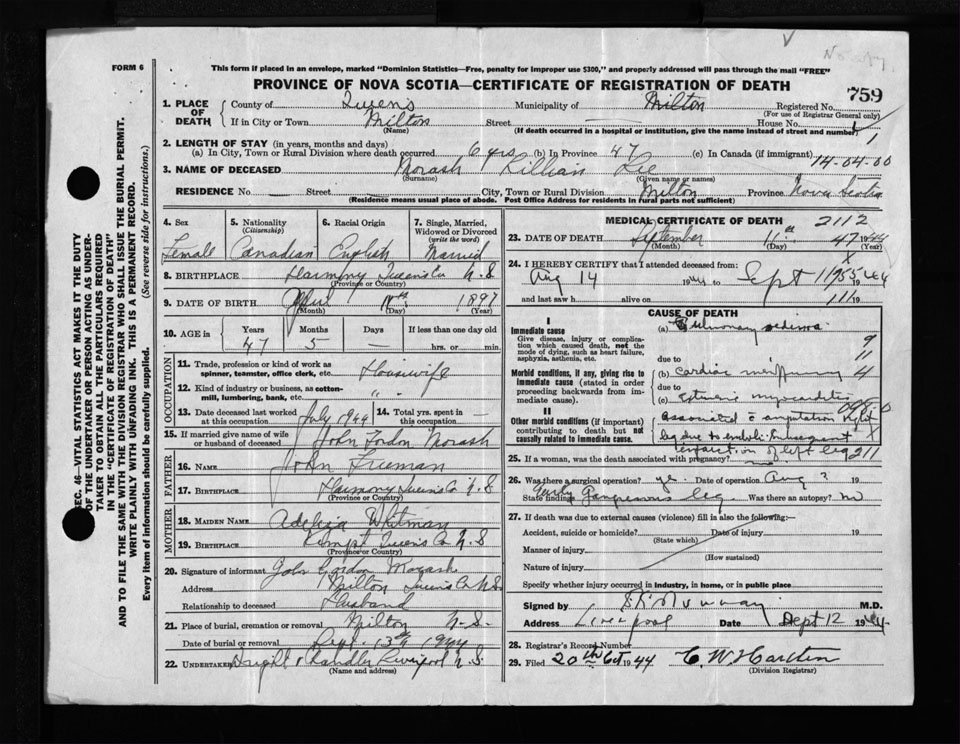 FORM 6
This form if placed in an envelope, marked "Dominion Statistics—Free, penalty for improper use $300," and properly addressed will pass through the mail "FREE"
PROVINCE OF NOVA SCOTIA—CERTIFICATE OF REGISTRATION OF DEATH
759
1. PLACE OF DEATH
County of Queens Municipality of Milton Registered No.
(For use of Registrar General only)
If in City or Town Milton Street House No.
(Name) (If death occurred in a hospital or institution, give the name instead of street and number)
2. LENGTH OF STAY (in years, months and days)
(a) In City, Town or Rural Division where death occurred 6 yrs (b) In Province 47 (c) In Canada (if immigrant)
14-04-00
3. NAME OF DECEASED Morash Lillian Lee
(Surname) (Given name or names)
RESIDENCE No. Street City, Town or Rural Division Milton Province Nova Scotia
(Residence means usual place of abode. Post Office Address for residents in rural parts not sufficient)
4. Sex 5. Nationality (Citizenship) 6. Racial Origin 7. Single, Married, Widowed or Divorced (write the word)
Female Canadian English Married
8. BIRTHPLACE Harmony Queens Co N.S
(Province or Country)
9. DATE OF BIRTH April 1897
(Month) (Day) (Year)
10. AGE in Years Months Days If less than one day old
47 5 — hrs. or min.
OCCUPATION
11. Trade, profession or kind of work as spinner, teamster, office clerk, etc. Housewife
12. Kind of industry or business, as cotton-mill, lumbering, bank, etc. " "
13. Date deceased last worked at this occupation July 1944 14. Total yrs. spent in this occupation —
15. If married give name of wife or husband of deceased John Gordon Morash
FATHER
16. NAME John Freeman
17. BIRTHPLACE Harmony Queens Co N.S
(Province or Country)
MOTHER
18. MAIDEN NAME Whitman
19. BIRTHPLACE Kempt Queens Co N.S
(Province or Country)
20. Signature of informant John Gordon Morash
Address Milton Queens Co N.S.
Relationship to deceased Husband
21. Place of burial, cremation or removal Milton N.S.
Date of burial or removal Sept. 13th 1944
22. UNDERTAKER Chandler Liverpool N.S.
(Name and address)
MEDICAL CERTIFICATE OF DEATH
2112
23. DATE OF DEATH September 11th 1944
47
(Month) (Day) (Year)
24. I HEREBY CERTIFY that I attended deceased from:
Aug 14 1944 to Sept 11 1944
and last saw h alive on 19
CAUSE OF DEATH
I
Immediate cause
Give disease, injury or complication which caused death, not the mode of dying, such as heart failure, asphyxia, asthenia, etc.
(a) Pulmonary oedema
due to
Morbid conditions, if any, giving rise to immediate cause (stated in order proceeding backwards from immediate cause).
(b) cardiac
due to
(c) myocarditis
II
Other morbid conditions (if important) contributing to death but not causally related to immediate cause.
Associated amputation right
leg due to emboli.
of left leg 211
25. If a woman, was the death associated with pregnancy? no
26. Was there a surgical operation? yes Date of operation Aug ? 19
State findings Gangrenous leg Was there an autopsy? no
27. If death was due to external causes (violence) fill in also the following:—
Accident, suicide or homicide? Date of injury 19
(State which)
Manner of injury
(How sustained)
Nature of injury
Specify whether injury occurred in industry, in home, or in public place
Signed by M.D.
Address Liverpool Date Sept 12 1944
28. Registrar's Record Number
29. Filed 20th Oct 1944
(Division Registrar)
SEC. 46—VITAL STATISTICS ACT MAKES IT THE DUTY
OF THE UNDERTAKER OR PERSON ACTING AS UNDER-
TAKER TO OBTAIN ALL THE PARTICULARS REQUIRED
IN THE "CERTIFICATE OF REGISTRATION OF DEATH"
AND TO FILE THE SAME WITH THE DIVISION REGISTRAR WHO SHALL ISSUE THE BURIAL PERMIT.
WRITE PLAINLY WITH UNFADING INK. THIS IS A PERMANENT RECORD.
Every item of information should be carefully supplied. (See reverse side for instructions.)